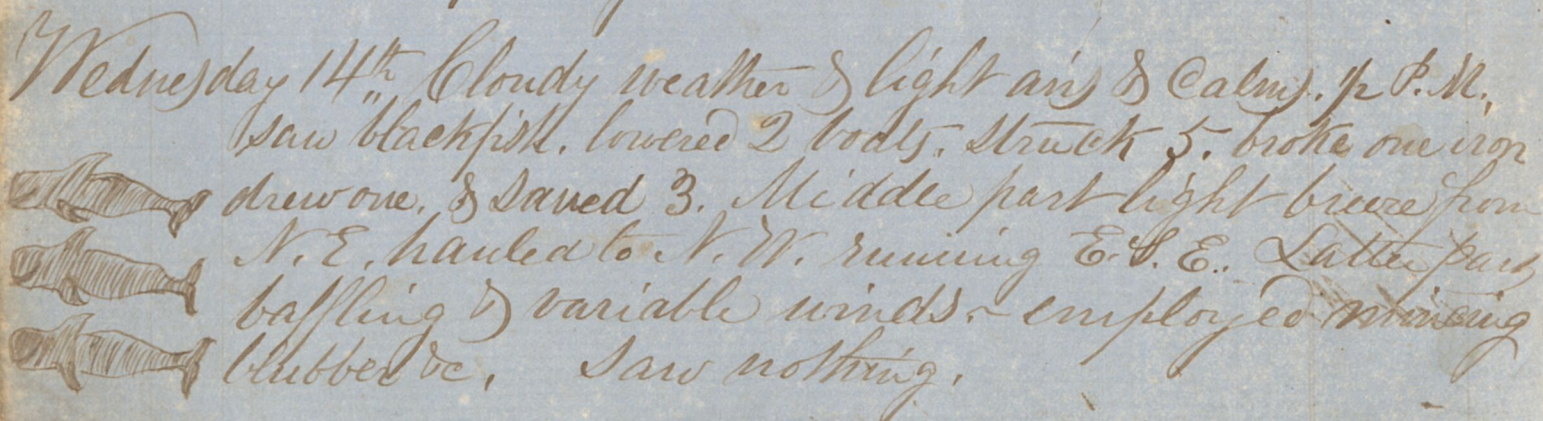 Wednesday 14th Cloudy weather & light airs & Calms. p P.M.,
saw blackfish. lowered 2 boats. struck 5. broke one iron
drew one. & saved 3. Middle part light breeze from
N. E. hauled to N. W. running E.S.E. Latter part
baffling & variable winds. employed mincing
blubber &c. saw nothing.